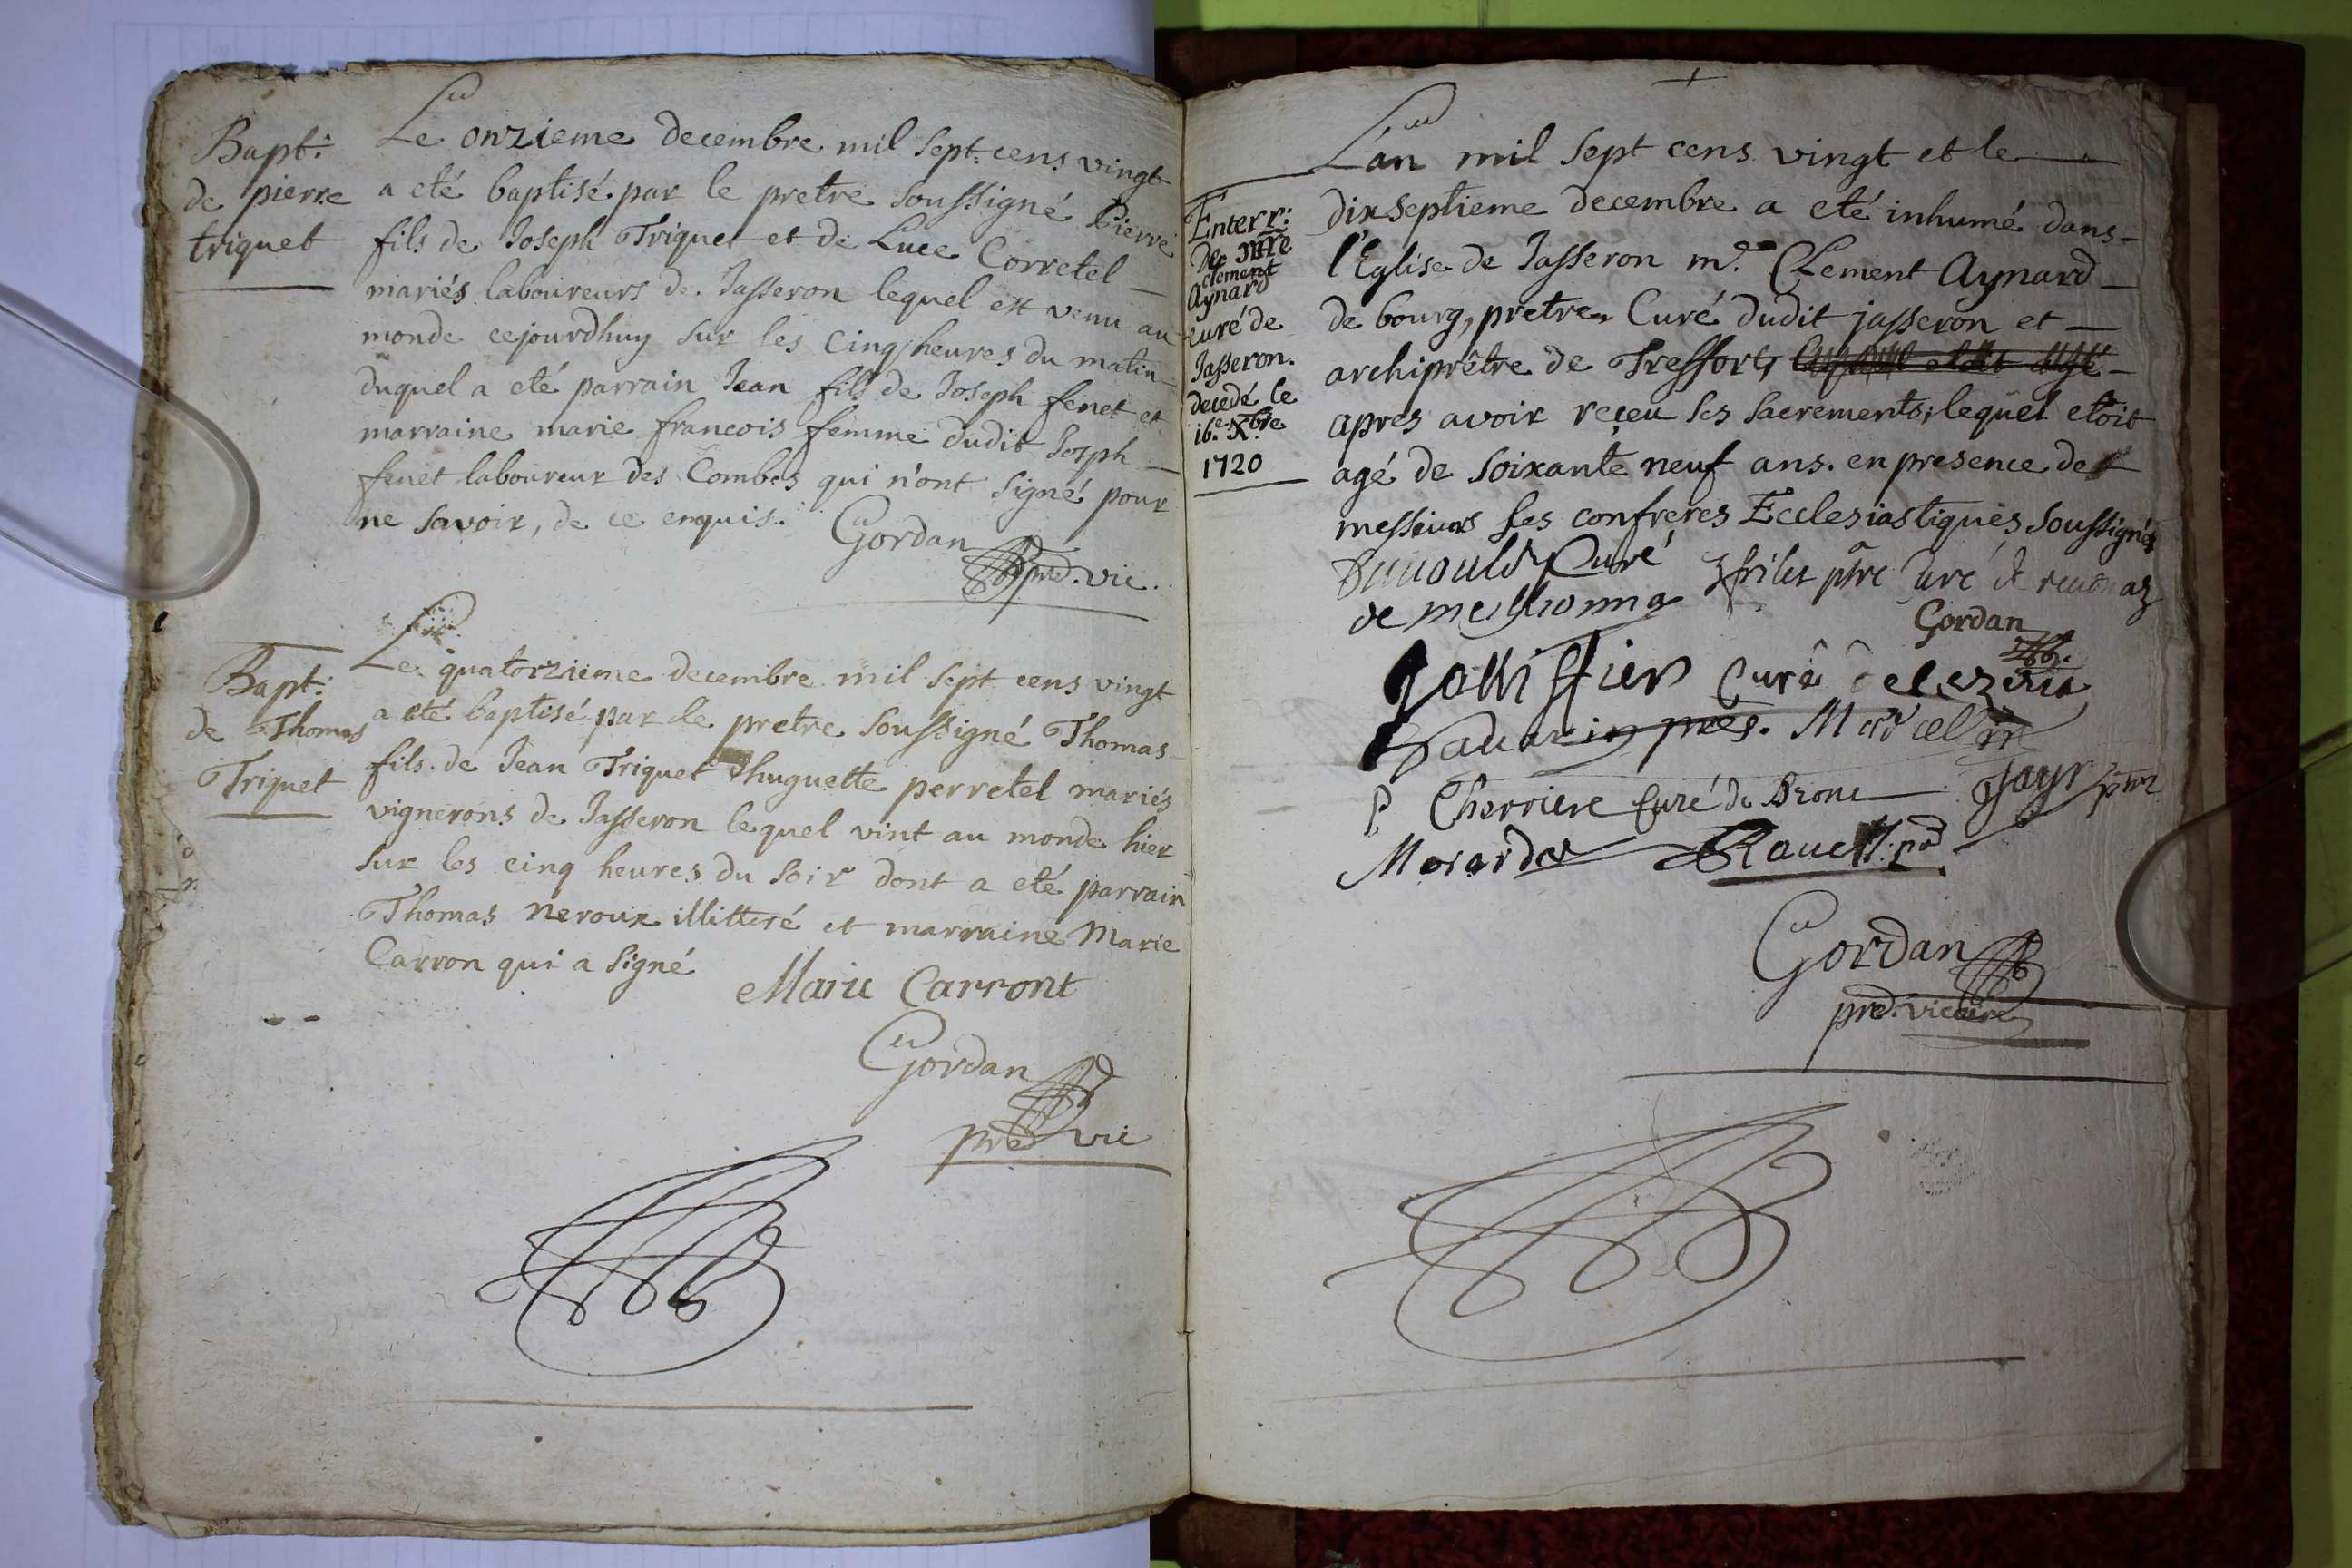 Bapt:
de pierre
triquet
Le onzieme decembre mil sept cens vingt
a eté baptisé par le pretre soussigné Pierre
fils de Joseph Triquet et de Luce Corretel
mariés laboureurs de Jasseron lequel est venu au
monde cejourdhuy sur les cinq heures du matin
duquel a eté parrain Jean fils de Joseph fenet et
marraine marie francois femme dudit Joseph
fenet laboureur des Combes qui n'ont signé pour
ne savoir, de ce enquis.
Gordan
pred. vic.
Bapt:
de Thomas
Triquet
Le quatorzieme decembre mil sept cens vingt
a eté baptisé par le pretre soussigné Thomas
fils de Jean Triquet d'huguette perretel mariés
vignerons de Jasseron lequel vint au monde hier
sur les cinq heures du soir dont a eté parrain
Thomas neroux illitteré et marraine Marie
Carron qui a signé
Marie Carront
Gordan
pred vic
Enterr:
de mre
clement
Aynard
curé de
Jasseron.
decedé le
16e Xbre
1720
L'an mil sept cens vingt et le
dixseptieme decembre a eté inhumé dans
l'Eglise de Jasseron mr. Clement Aynard
de bourg, pretre, Curé dudit jasseron et
archiprêtre de Treffort,
apres avoir reçeu ses sacrements, lequel etoit
agé de soixante neuf ans. en presence de
messieurs ses confreres Ecclesiastiques soussignés
Curé
de meillonna
ptre curé de
Gordan
curé de
Savarin
P Cherriere curé de Drone
Jayr
Morard
Gordan
pred. vicaire